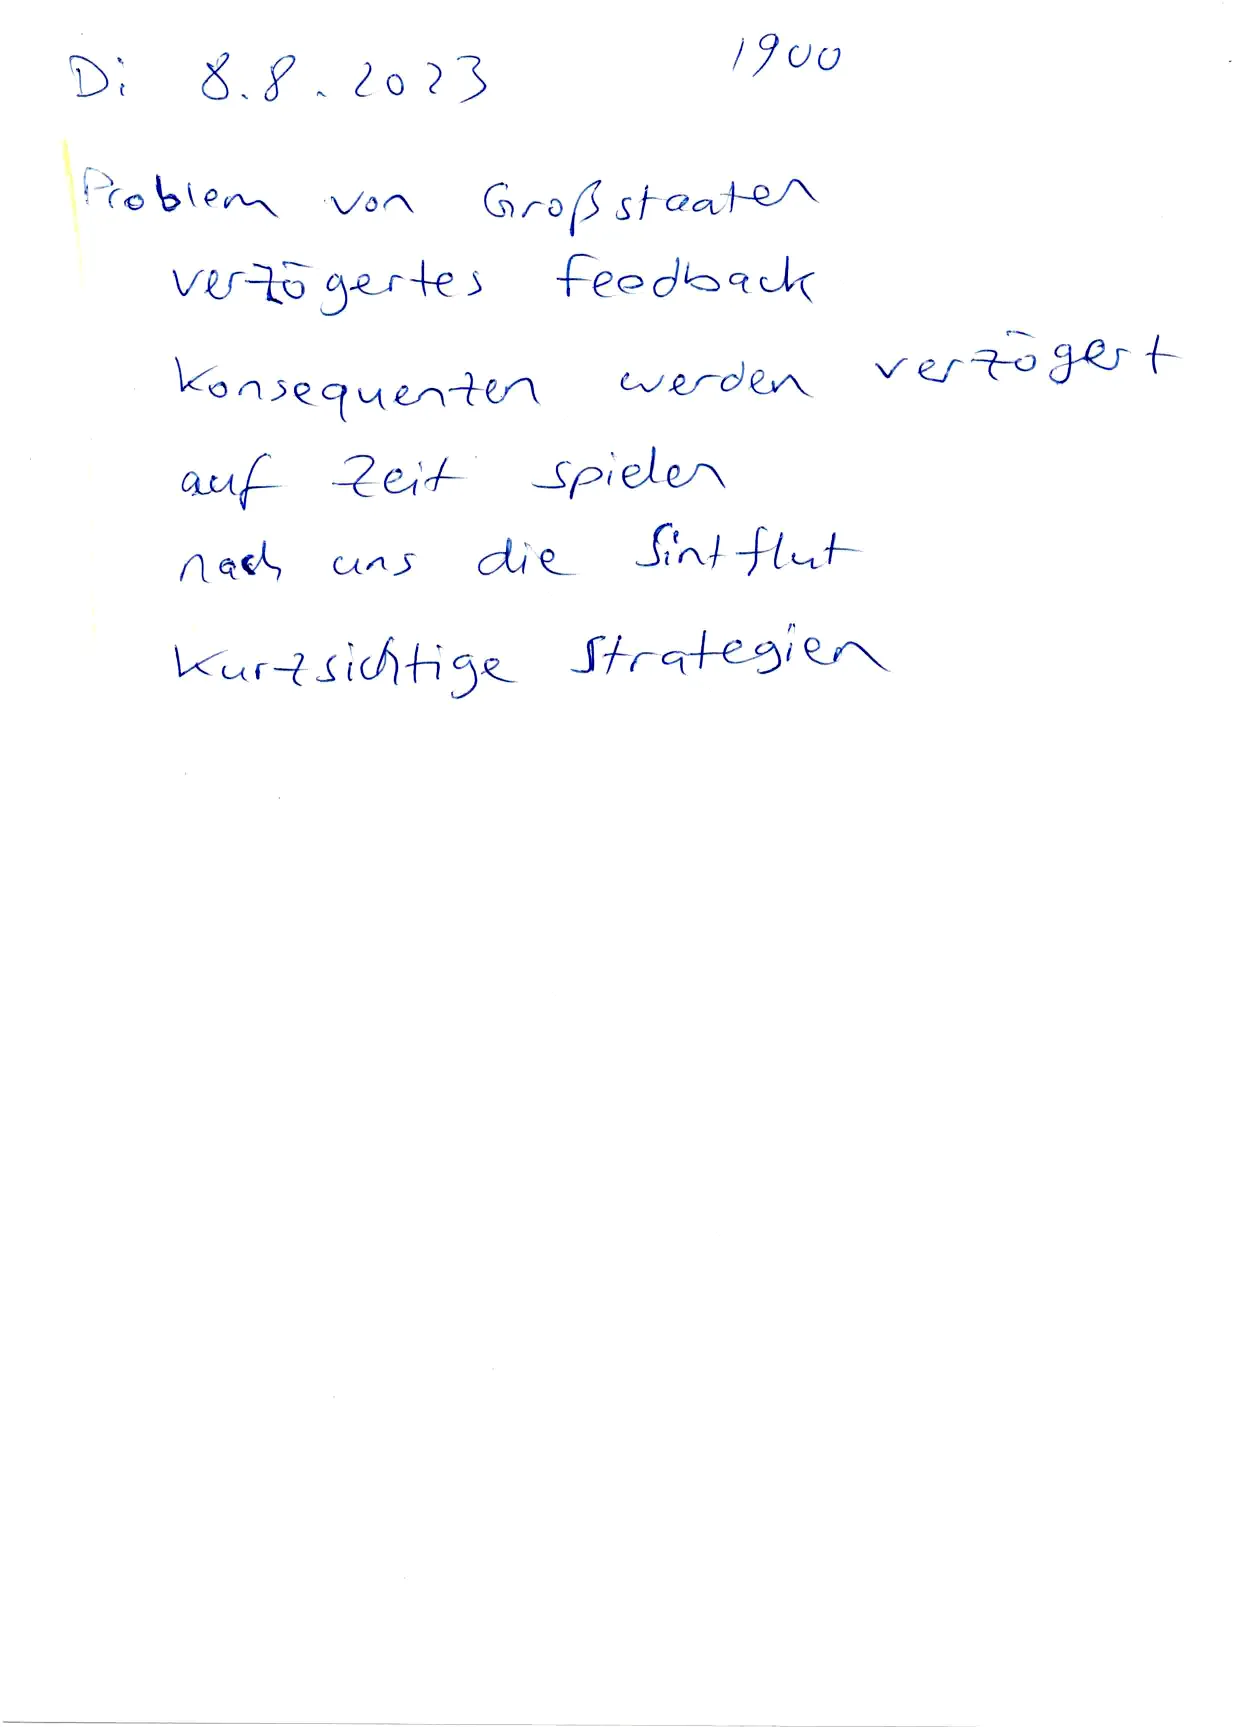 Di 8.8.2023 1900
Problem von Großstaaten
verzögertes feedback
Konsequenzen werden verzögert
auf Zeit spielen
nach uns die Sintflut
Kurzsichtige Strategien